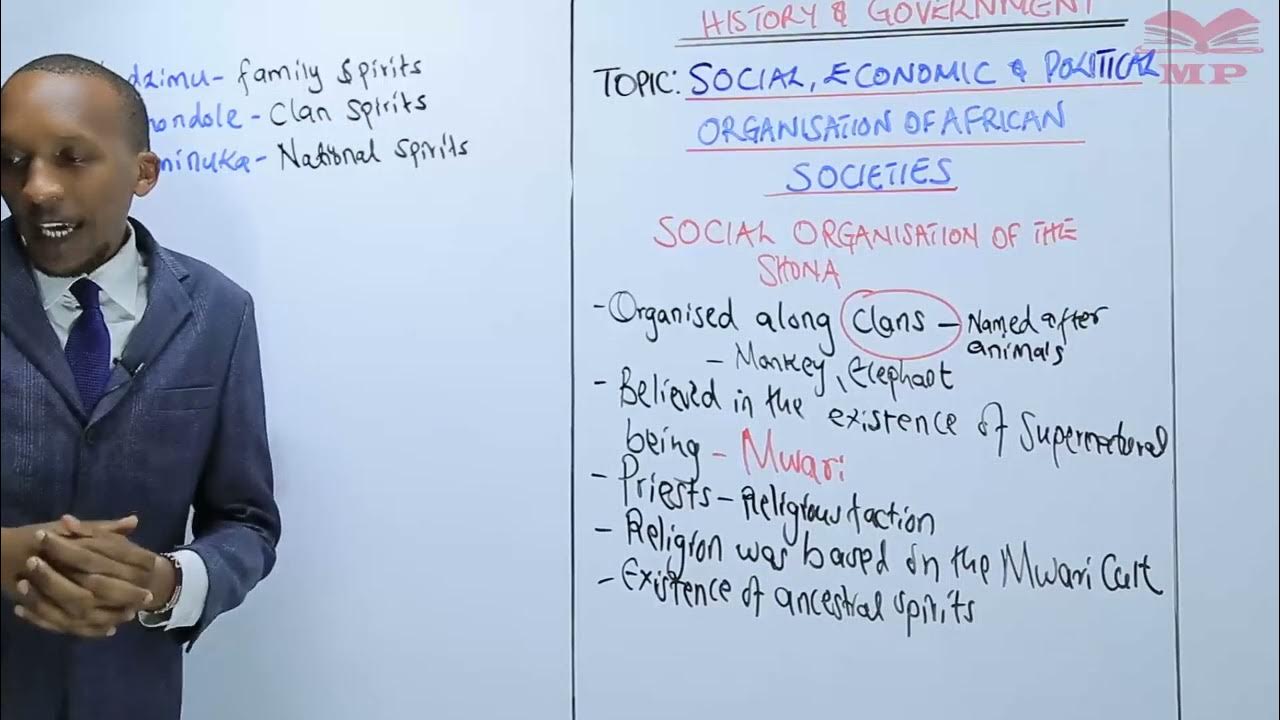 dzimu- family spirits
ondole - Clan spirits
minuka- National spirits
HISTORY & GOVERNMENT
MP
TOPIC: SOCIAL, ECONOMIC & POLITICAL
ORGANISATION OF AFRICAN
SOCIETIES
SOCIAL ORGANISATION OF THE
SHONA
- Organised along Clans - Named after
animals
- Monkey, Elephant
- Believed in the existence of Supernatural
being - Mwari
- Priests - Religious faction
- Religion was based on the Mwari Cult
- Existence of ancestral spirits